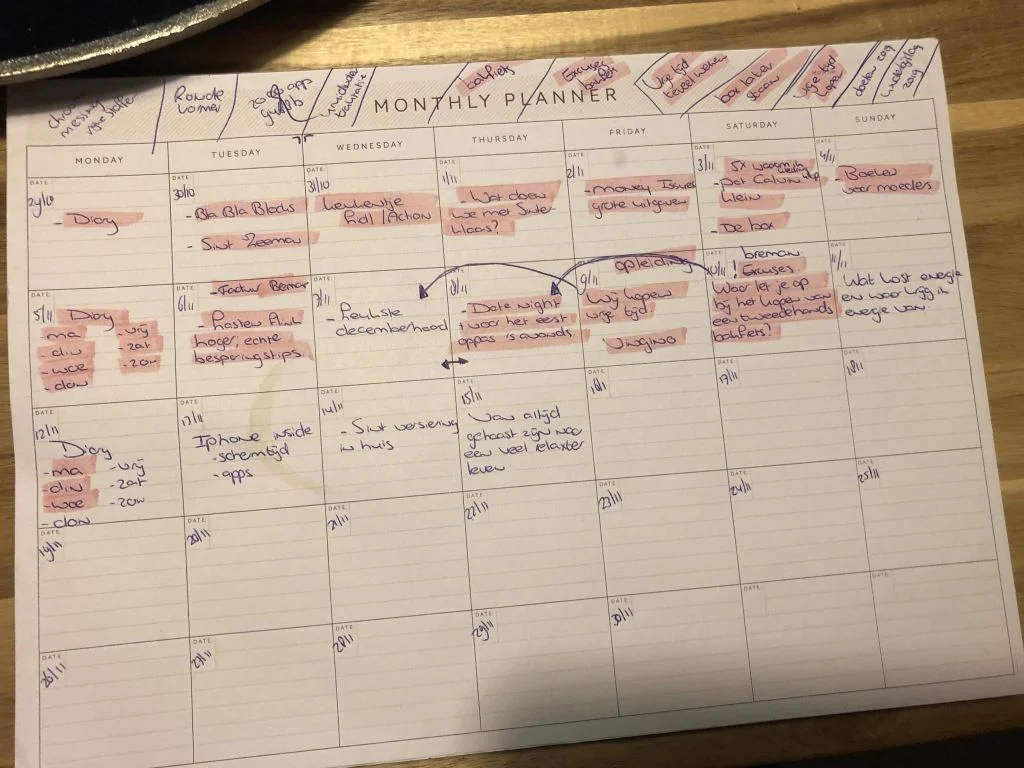 Ronde
bakfiets
Excuses
bakfiets
Vrije tijd
MONTHLY PLANNER
MONDAY
TUESDAY
WEDNESDAY
THURSDAY
FRIDAY
SATURDAY
SUNDAY
DATE:
- Diary
DATE:
30/10
- Bla Bla Blocks
- Sint Zeeman
DATE:
31/10
Leukentje
Hall/Action
DATE:
1/11
- Wat doen
we met Sinter
klaas?
DATE:
2/11
- money Issues
grote uitgaven
DATE:
3/11
5x waarom ik
- pot Calvin
klein
- De box
DATE:
4/11
- Boeken
voor moeders
DATE:
5/11 Diary
- ma - vrij
- din - zat
- woe - zon
- don
DATE:
6/11
- Factuur Bemar
- kosten flink
hoger, echte
besparingstips.
DATE:
7/11
- Leukste
decemberhood
DATE:
8/11
- Date night
voor het eerst
oppas 's avonds.
DATE:
9/11
opleiding
Wij kopen
vrije tijd
Unging
DATE:
10/11
breman
! Excuses
Waar let je op
bij het kopen van
een tweedehands
bakfiets?
DATE:
11/11
Wat kost energie
en waar krijg ik
energie van.
DATE:
12/11
Diary
- ma - vrij
- din - zat
- woe - zon
- don
DATE:
13/11
Iphone inside
- schermtijd
- apps
DATE:
14/11
- Sint versiering
in huis
DATE:
15/11
Van altijd
gehaast zijn naar
een veel relaxter
leven
DATE:
16/11
DATE:
17/11
DATE:
18/11
DATE:
19/11
DATE:
20/11
DATE:
21/11
DATE:
22/11
DATE:
23/11
DATE:
24/11
DATE:
25/11
DATE:
26/11
DATE:
27/11
DATE:
28/11
DATE:
29/11
DATE:
30/11
DATE:
DATE: